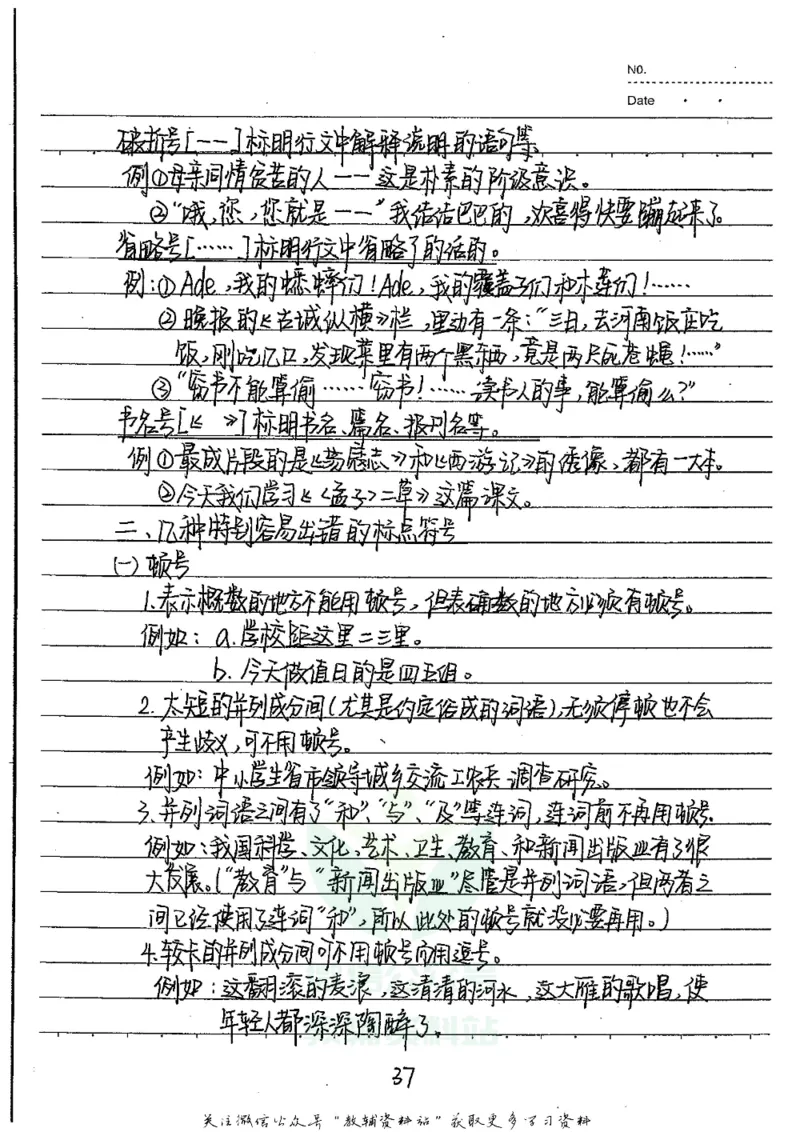 NO.
Date
破折号[——]标明行文中解释说明的语句等
例①母亲同情贫苦的人——这是朴素的阶级意识。
②"哦,您,您就是——"我结结巴巴的,欢喜得快要蹦起来了。
省略号[……]标明行文中省略了的话的。
例:①Ade,我的蟋蟀们!Ade,我的覆盖子们和木莲们!……
②晚报的《古城纵横》栏,里边有一条:"三日,去河南饭庄吃
饭,刚吃几口,发现菜里有两个黑东西,竟是两只死苍蝇!……"
③"窃书不能算偷……窃书!……读书人的事,能算偷么?"
书名号[《 》]标明书名、篇名、报刊名等。
例①最成片段的是《劳山志》和《西游记》的绣像,都有一大本。
②今天我们学习《〈孟子〉二章》这篇课文。
二、几种特别容易出错的标点符号
(一)顿号
1.表示概数的地方不能用顿号,但表确数的地方必须有顿号。
例如:a.学校距这里二三里。
b.今天做值日的是四五组。
2.太短的并列成分间(尤其是约定俗成的词语),无须停顿也不会
产生歧义,可不用顿号。
例如:中小学生 省市领导 城乡交流 工农兵 调查研究。
3.并列词语之间有了"和"、"与"、"及"等连词,连词前不再用顿号.
例如:我国科学、文化、艺术、卫生、教育、和新闻出版业有了很
大发展。("教育"与"新闻出版业"尽管是并列词语,但两者之
间已经使用了连词"和",所以此处的顿号就没必要再用。)
4.较卡的并列成分间可不用顿号而用逗号。
例如:这翻滚的麦浪,这清清的河水,这大雁的歌唱,使
年轻人都深深陶醉了。
37
关注微信公众号"教辅资料站"获取更多学习资料